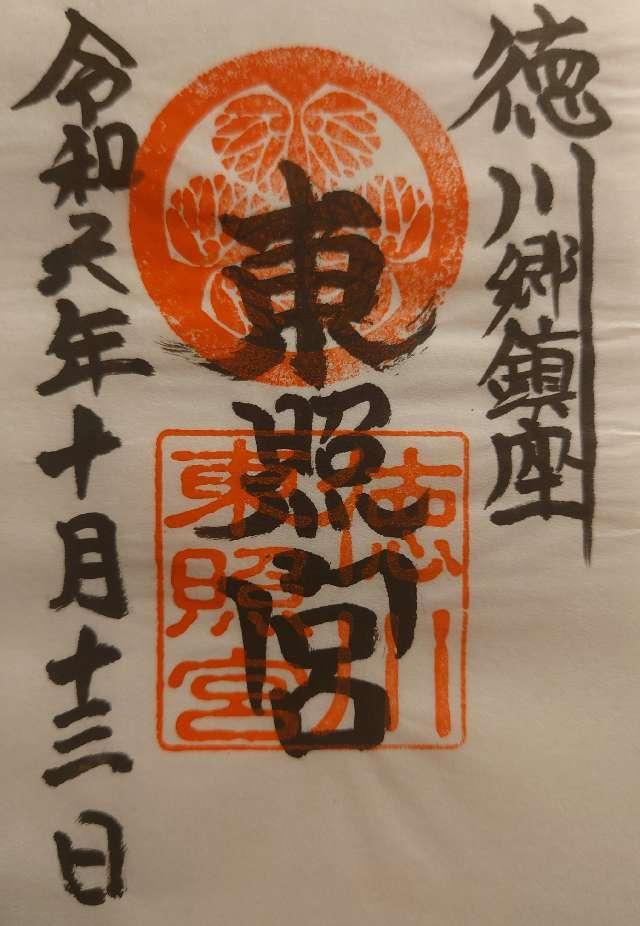 徳川郷鎮座
東照宮
徳川
東照宮
令和元年十月十三日